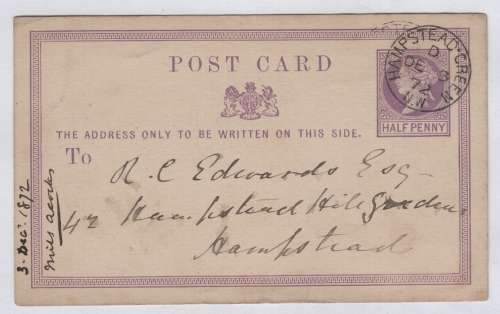 POST CARD
HAMPSTEAD·GREEN
D
DE 3
72
N.W
HALF PENNY
THE ADDRESS ONLY TO BE WRITTEN ON THIS SIDE.
To
R. C Edwards Esq
42 Hampstead Hill Gardens
Hampstead
3. Dec.r 1872
Miles